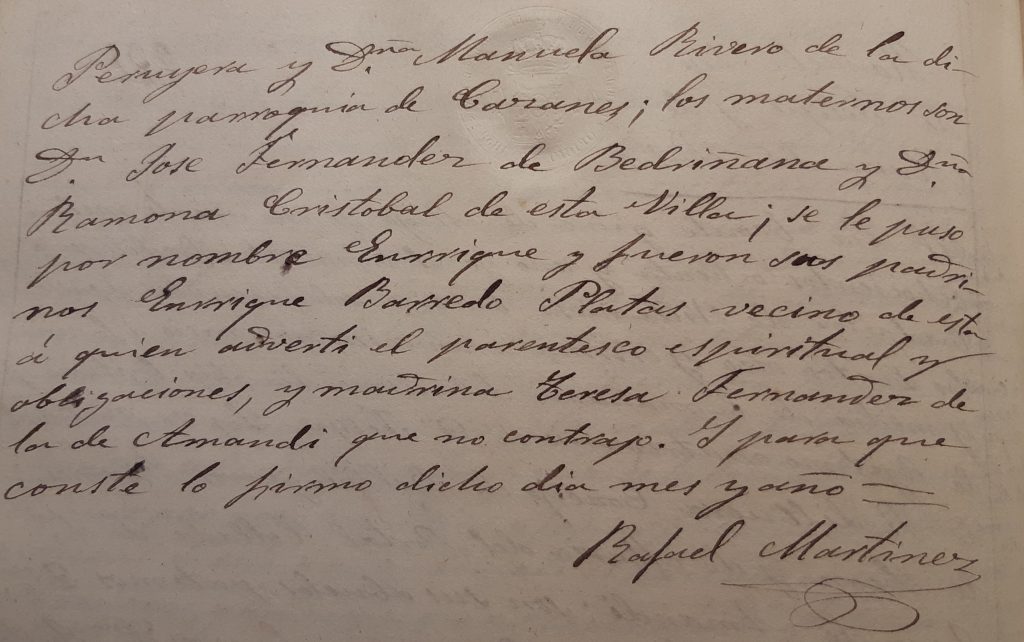 Peruyera y Dña Manuela Rivero de la di-
cha parroquia de Cazanes; los maternos son
Dn Jose Fernandez de Bedriñana y Dña
Ramona Cristobal de esta Villa; se le puso
por nombre Enrrique y fueron sus padri-
nos Enrrique Barredo Platas vecino de esta
á quien adverti el parentesco espiritual y
obligaciones, y madrina Teresa Fernandez de
la de Amandi que no contrajo. Y para que
conste lo firmo dicho dia mes y año =
Rafael Martinez